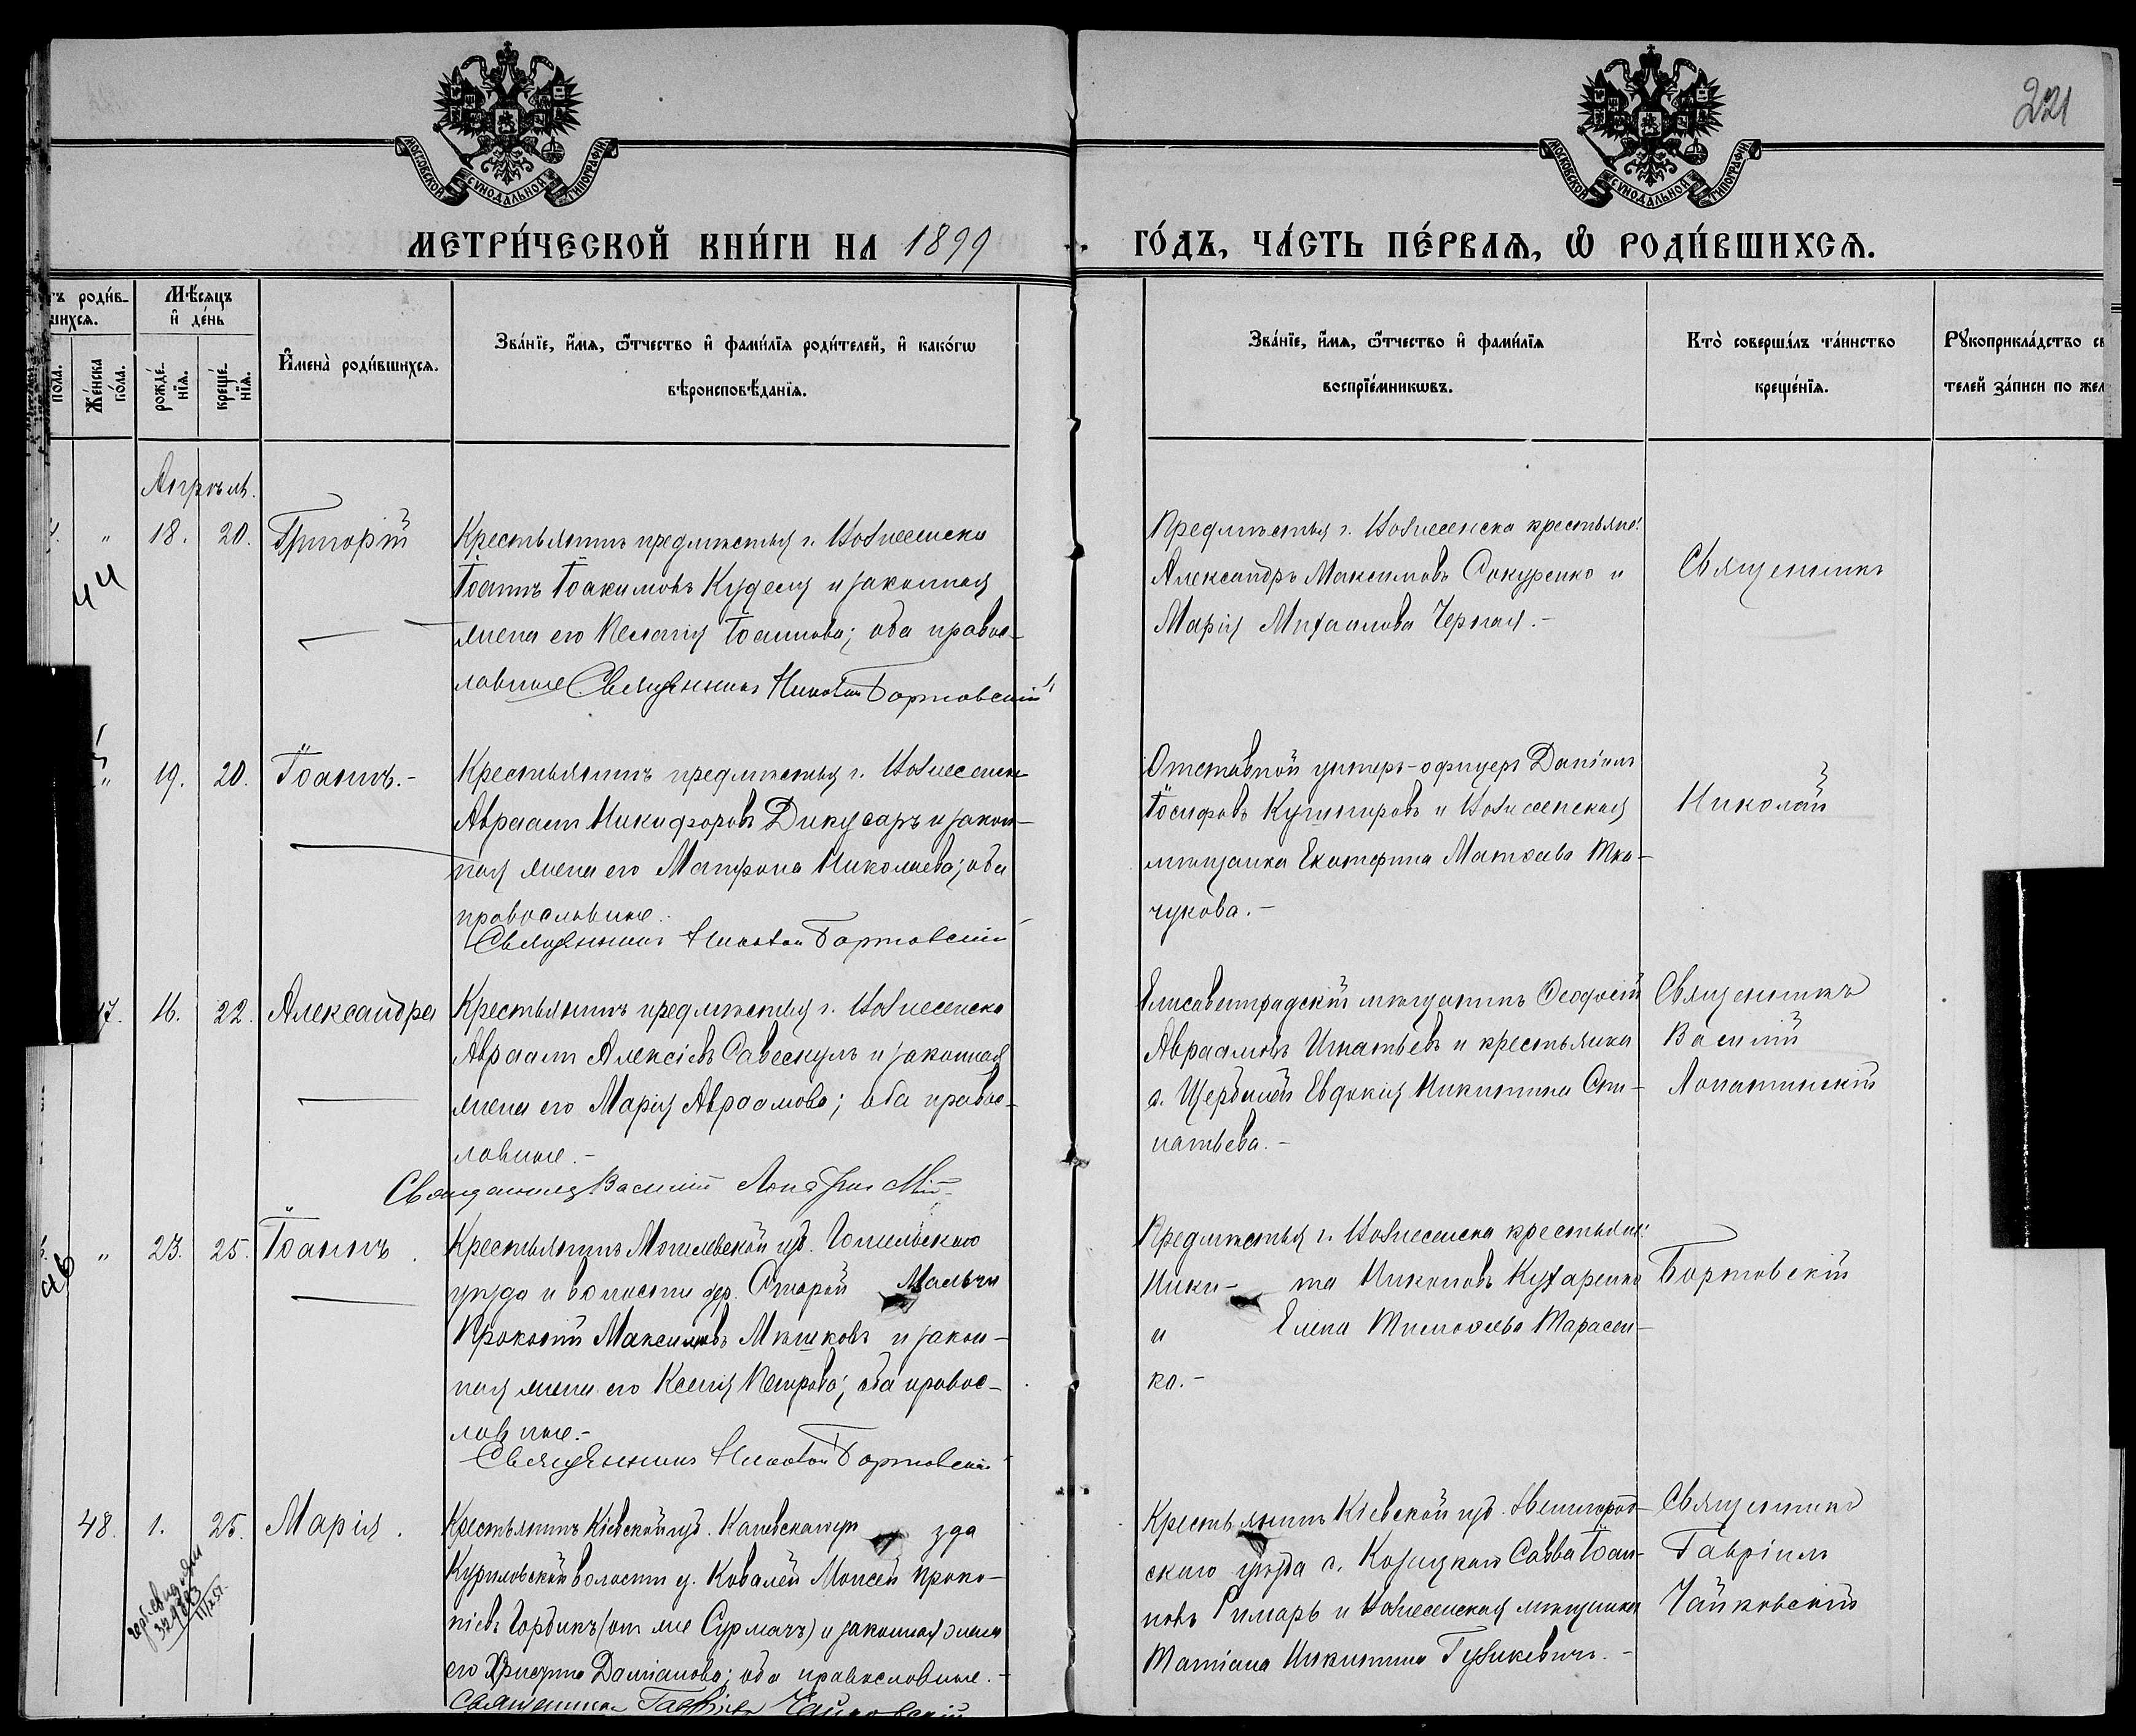 221
МОСКОВСКОЙ СѴНОДАЛЬНОЙ ТИПОГРАФІИ
МОСКОВСКОЙ СѴНОДАЛЬНОЙ ТИПОГРАФІИ
МЕТРИ́ЧЕСКОЙ КНИ́ГИ НА 1899
ГО́ДЪ, ЧА́СТЬ ПЕ́РВАѦ, Ѡ҆ РОДИ́ВШИХСѦ.
роди́в-
шихсѧ.
по́ла.
Же́нска по́ла.
Мѣ́сѧцъ и҆ де́нь
рожде́-нїѧ.
креще́-нїѧ.
И҆мена̀ роди́вшихсѧ.
Зва́нїе, и҆́мѧ, ѻ҆́тчество и҆ фами́лїѧ роди́телей, и҆ како́гѡ
вѣроисповѣ́данїѧ.
Зва́нїе, и҆́мѧ, ѻ҆́тчество и҆ фами́лїѧ
воспрїе́мникѡвъ.
Кто̀ соверша́лъ та́инство
креще́нїѧ.
Рꙋкоприкла́дство
телей за́писи по
Апрѣль.
44
"
18.
20.
Григорій
Крестьянинъ предмѣстья г. Вознесенска
Іоаннъ Іоакимовъ Куделя и законная
жена его Пелагія Іоаннова; оба правос-
лавные Священникъ Николай Бортовскій
Предмѣстья г. Вознесенска крестьяне:
Александръ Максимовъ Сокуренко и
Марія Михаилова Черная.-
Священникъ
"
19.
20.
Іоаннъ.-
Крестьянинъ предмѣстья г. Вознесенска
Авраамъ Никифоровъ Дикусаръ и закон-
ная жена его Матрона Николаева; оба
православные.
Священникъ Николай Бортовскій
Отставной унтеръ-офицеръ Даніилъ
Іосифовъ Кушнировъ и Вознесенская
мѣщанка Екатерина Матѳеева Тка-
чукова.-
Николай
47.
16.
22.
Александра
Крестьянинъ предмѣстья г. Вознесенска
Авраамъ Алексіевъ Савескулъ и законная
жена его Марія Авраамова; оба правос-
лавные.-
Священникъ Василій Лопатинскій
Елисаветградскій мѣщанинъ Ѳеодосій
Авраамовъ Игнатьевъ и крестьянка
с. Щербаней Евдокія Никитина
натьева.-
Священникъ
Василій
Лопатинскій
46
"
23.
25.
Іоаннъ.
Крестьянинъ Могилевской губ. Гомельскаго
уѣзда и волости дер. Старой Мильчи
Прокопій Максимовъ Мѣшковъ и закон-
ная жена его Ксенія Петрова; оба правос-
лавные.-
Священникъ Николай Бортовскій
Предмѣстья г. Вознесенска крестьяне:
Ники- та Никоновъ Кухаренко
и Елена Тимоѳеева Тарасен-
ко.-
Бортовскій
48.
1.
25.
Марія.
Крестьянинъ Кіевской губ. Каневскаго уѣ зда
Куриловской волости с. Ковалей Моисей Проко-
піевъ Гордикъ (онъ же Сурмачъ) и законная жена
его Христина Даміанова; оба православные.-
Священникъ Гавріилъ Чайковскій
Крестьянинъ Кіевской губ. Звенигород-
скаго уѣзда с. Козацкаго Савва Іоан-
новъ Римарь и Вознесенская мѣщанка
Татіана Никитина Гузикевичъ.-
Священникъ
Гавріилъ
Чайковскій